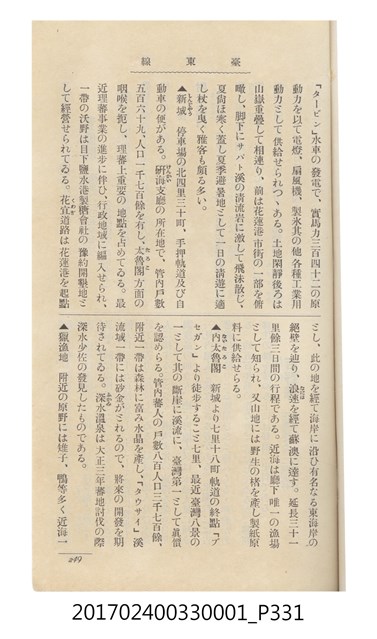 臺東線
「タービン」水車の發電で、實馬力三百四十二の原
動力を以て電燈、扇風機、製氷其の他各種工業用
動力として供給せられてゐる。土地閑靜後ろは
山嶽重疊して相連り、前は花蓮港市街の一部を俯
瞰し、脚下にサバト溪の清流岩に激して飛沫散じ、
夏尙ほ寒く蓋し夏季避暑地として一日の清遊に適
し杖を曳く雅客も頗る多い。
▲新城　停車場の北四里三十町、手押軌道及び自
動車の便がある。硏海支廳の所在地で、管内戶數
五百六十九、人口一千七百餘を有し、太魯閣方面の
咽喉を扼し、理蕃上重要の地點を占めてゐる。最
近理蕃事業の進步に伴ひ、行政地域に編入せられ、
一帶の沃野は目下鹽水港製糖會社の豫約開墾地と
して經營せられてゐる。花宜道路は花蓮港を起點
とし、此の地を經て海岸に沿ひ有名なる東海岸の
絕壁を辿り、浪速を經て蘇澳に達す。延長三十一
里餘三日間の行程である。近海は廳下唯一の漁場
として知られ、又山地には野生の楮を產し製紙原
料に供給せらる。
▲內太魯閣　新城より七里十八町軌道の終點「ブ
セガン」より徒步すること七里、最近臺灣八景の
一として其の斷崖に溪流に、臺灣第一として眞價
を認めらる。管內蕃人の戶數八百人口三千七百餘、
附近一帶は森林に富み水晶を產し、「タウサイ」溪
流域一帶には砂金がとれるので、將來の開發を期
待されてゐる。深水溫泉は大正三年蕃地討伐の際
深水少佐の發見したものである。
▲獵漁地　附近の原野には雉子、鴨等多く近海一
289
201702400330001_P331